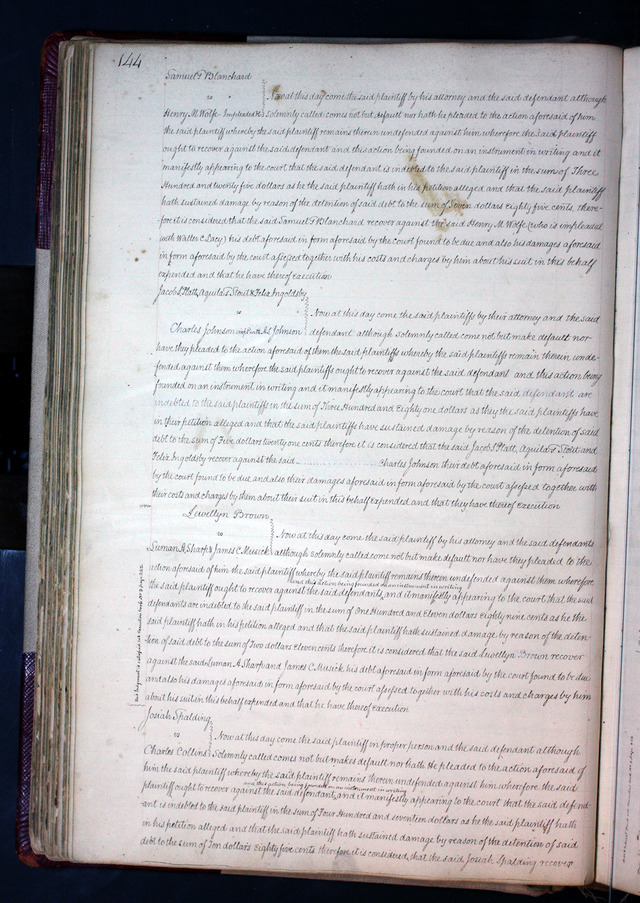 144
Samuel T Blanchard
vs Now at this day come the said plaintiff by his attorney and the said defendant although
Henry M. Wolfe Impleaded &c solemnly called comes not but default nor hath he pleaded to the action aforesaid of him
the said plaintiff whereby the said plaintiff remains therein undefended against him wherefore the said plaintiff
ought to recover against the said defendant and this action being founded on an instrument in writing and it
manifestly appearing to the court that the said defendant is indebted to the said plaintiff in the sum of Three
Hundred and twenty five dollars as he the said plaintiff hath in his petition alleged and that the said plaintiff
hath sustained damage by reason of the detention of said debt to the sum of Seven dollars eighty five cents there-
fore it is considered that the said Samuel T Blanchard recover against the said Henry M. Wolfe (who is impleaded
with Walter C Lacy) his debt aforesaid in form aforesaid by the court found to be due and also his damages aforesaid
in form aforesaid by the court assessed together with his costs and charges by him about his suit in this behalf
expended and that he have thereof execution
Jacob S Platt, Aquila T Stout & Felix Ingoldsby
vs Now at this day come the said plaintiffs by their attorney and the said
Charles Johnson A S Johnson defendant although solemnly called come not but make default nor
have they pleaded to the action aforesaid of them the said plaintiffs whereby the said plaintiffs remain therein unde-
fended against them wherefore the said plaintiffs ought to recover against the said defendant and this action being
founded on an instrument in writing and it manifestly appearing to the court that the said defendant are
indebted to the said plaintiffs in the sum of Three Hundred and Eighty one dollars as they the said plaintiffs have
in their petition alleged and that the said plaintiffs have sustained damage by reason of the detention of said
debt to the sum of Five dollars twenty one cents therefore it is considered that the said Jacob S Platt, Aquila T Stout and
Felix Ingoldsby recover against the said Charles Johnson their debt aforesaid in form aforesaid
by the court found to be due and also their damages aforesaid in form aforesaid by the court assessed together with
their costs and charges by them about their suit in this behalf expended and that they have thereof execution
Lewellyn Brown
vs Now at this day come the said plaintiff by his attorney and the said defendants
Luman A Sharp & James C Musick although solemnly called come not but make default nor have they pleaded to the
action aforesaid of him the said plaintiff whereby the said plaintiff remains therein undefended against them wherefore
and this action being founded on an instrument in writing
the said plaintiff ought to recover against the said defendants, and it manifestly appearing to the court that the said
defendants are indebted to the said plaintiff in the sum of One Hundred and Eleven dollars eighty nine cents as he the
said plaintiff hath in his petition alleged and that the said plaintiff hath sustained damage by reason of the deten-
tion of said debt to the sum of Two dollars eleven cents therefore it is considered that the said Lewellyn Brown recover
against the said Luman A Sharp and James C Musick his debt aforesaid in form aforesaid by the court found to be due
and also his damages aforesaid in form aforesaid by the court assessed together with his costs and charges by him
about his suit in this behalf expended and that he have thereof execution
Josiah Spalding
vs Now at this day come the said plaintiff in proper person and the said defendant although
Charles Collins Solemnly called comes not but makes default nor hath He pleaded to the action aforesaid of
him the said plaintiff whereby the said plaintiff remains therein undefended against him wherefore the said
and this action being founded on an instrument in writing
plaintiff ought to recover against the said defendant, and it manifestly appearing to the court that the said defend-
ant is indebted to the said plaintiff in the sum of Four Hundred and seventeen dollars as he the said plaintiff hath
in his petition alleged and that the said plaintiff hath sustained damage by reason of the detention of said
debt to the sum of Ten dollars Eighty five cents therefore it is considered, that the said Josiah Spalding recover